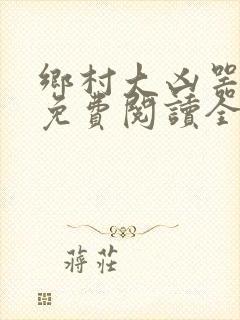 鄉村大凶器
免費閱讀全
蔣莊